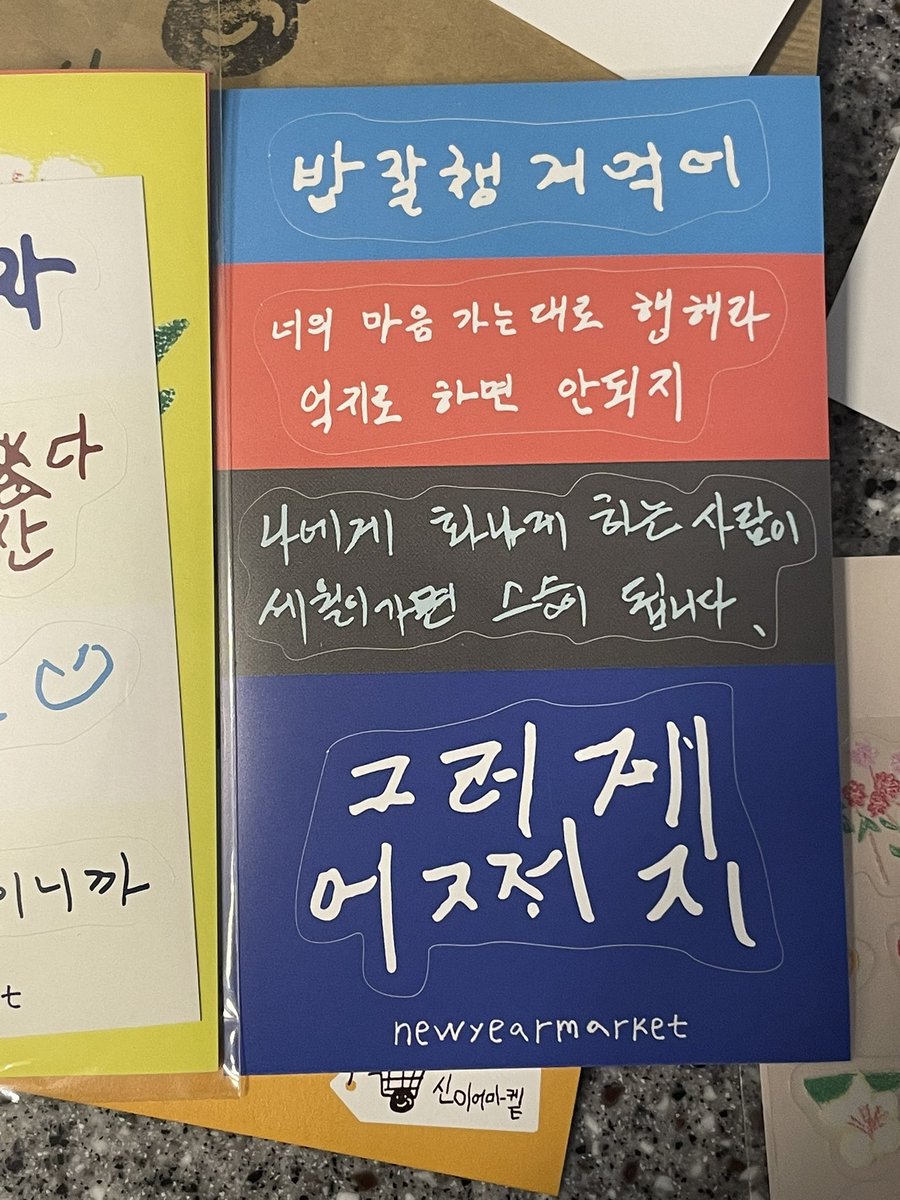 라
다
산
이니까
밥 잘챙겨먹어
너의 마음 가는대로 행해라
억지로 하면 안되지
나에게 화나게 하는사람이
세월이가면 스승이 됩니다.
그러재
어쩡지
newyearmarket
신이어마켙